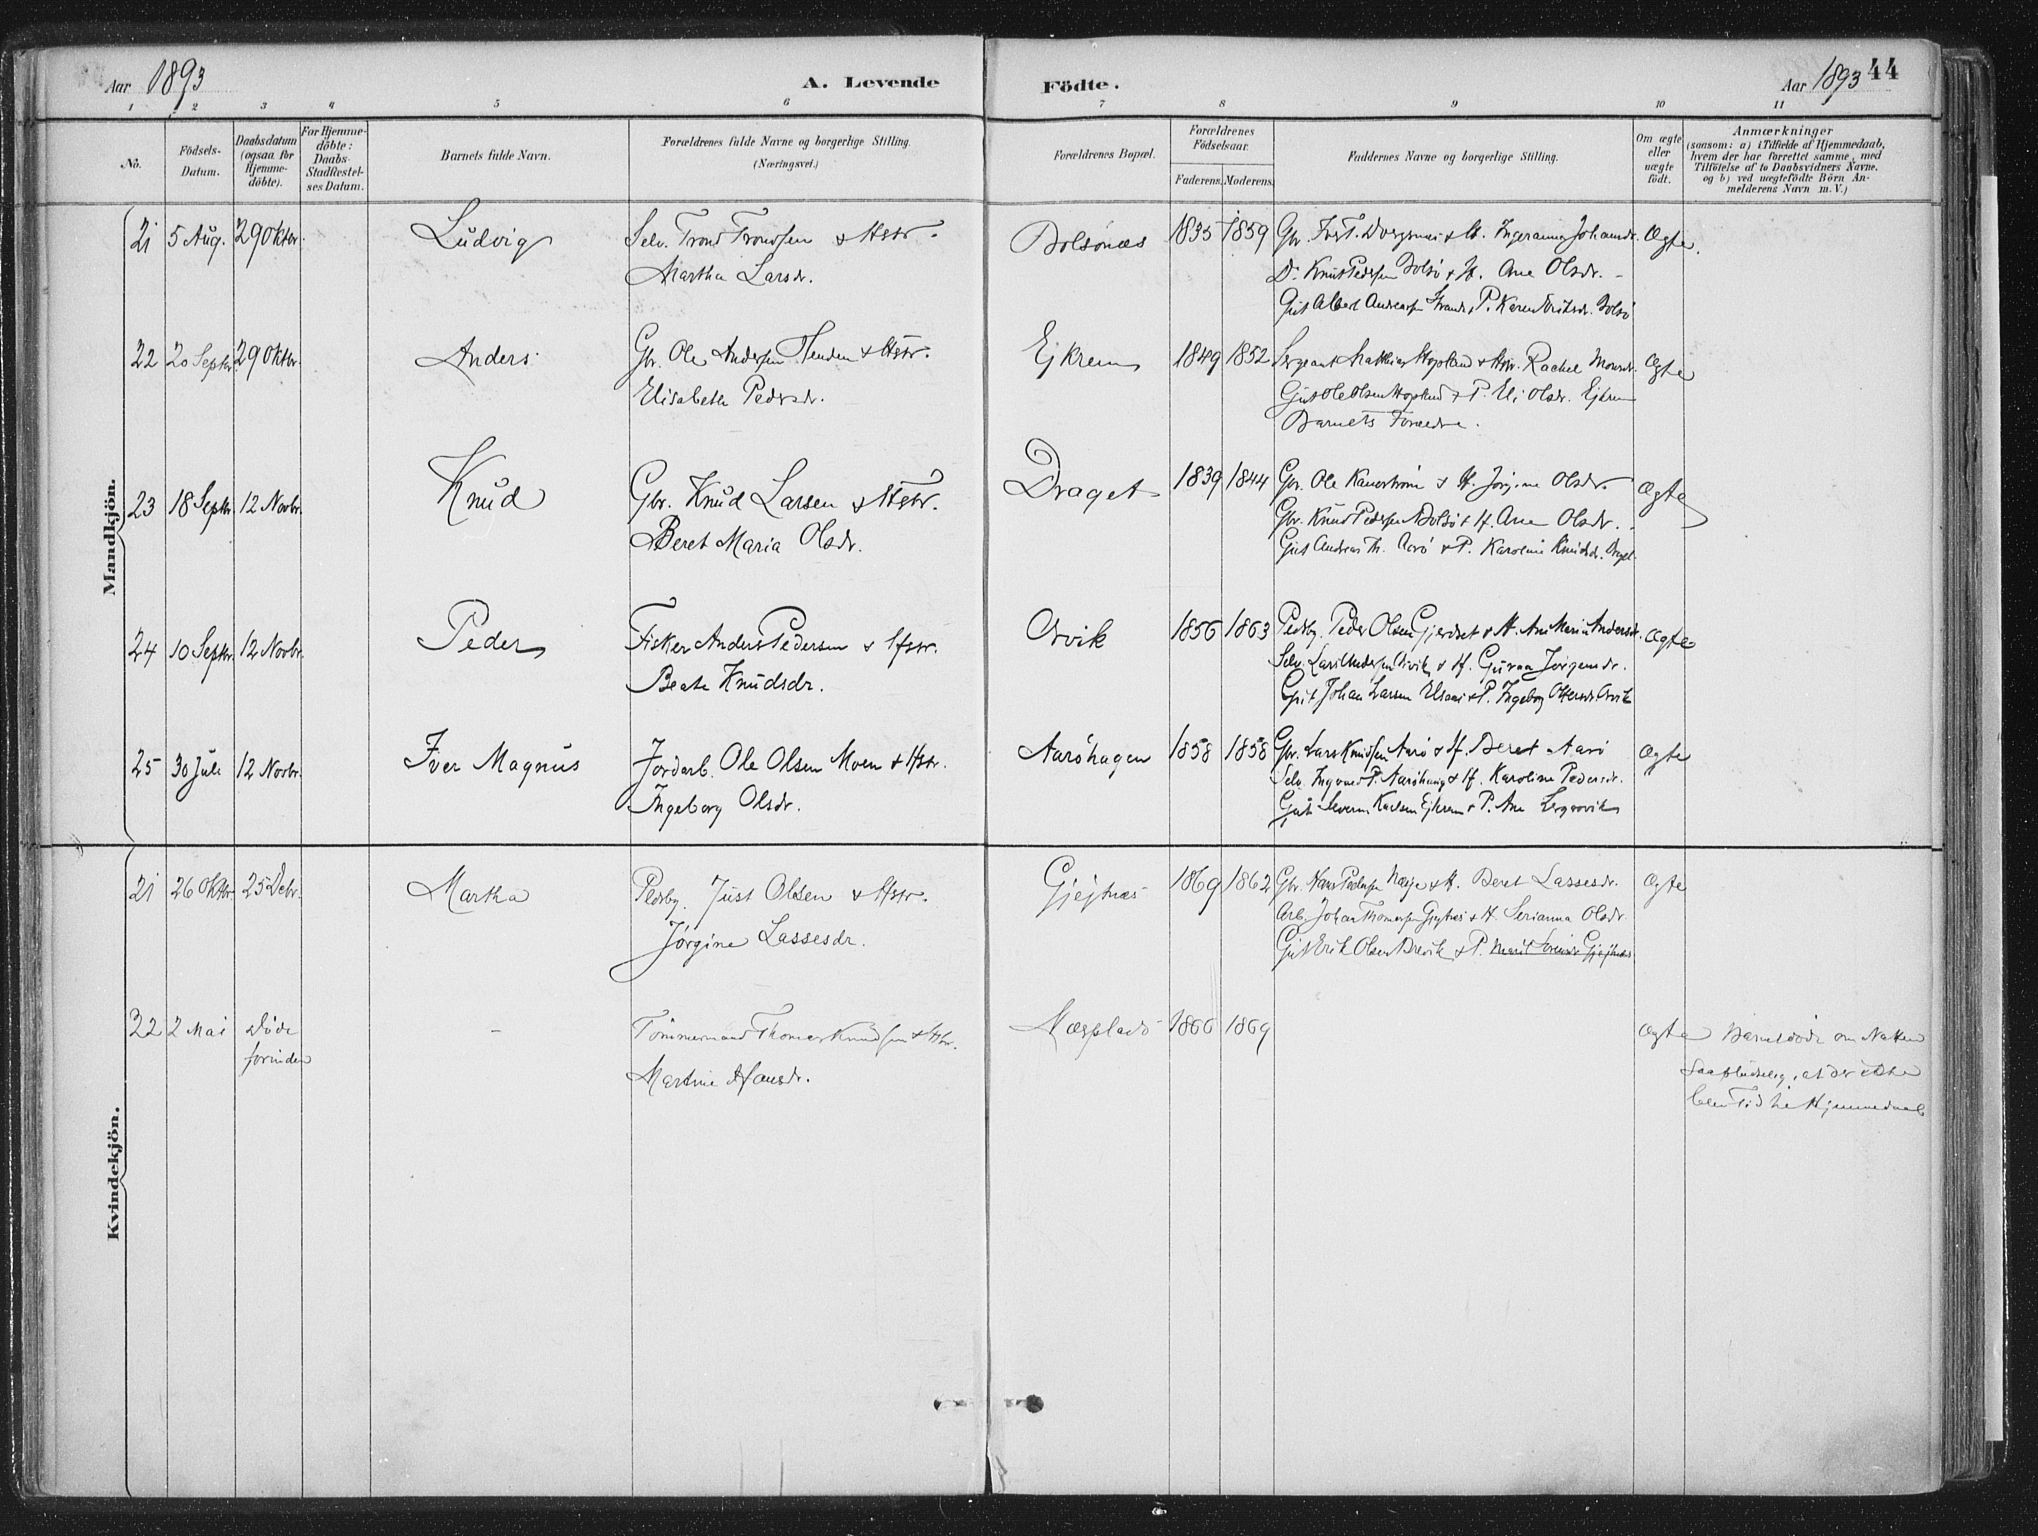 Aar 1893 A. Levende Födte. Aar 1893 44
1 2 3 4 5 6 7 8 9 10 11
No. Födsels-Datum. Daabsdatum (ogsaa for Hjemmedöbte). For Hjemmedöbte: Daabs-Stadfæstelses Datum. Barnets fulde Navn. Forældrenes fulde Navne og borgerlige Stilling. (Næringsvei.) Forældrenes Bopæl. Forældrenes Födselsaar. Faderens. Moderens. Faddernes Navne og borgerlige Stilling. Om ægte eller uægte födt. Anmærkninger (saasom: a) i Tilfælde af Hjemmedaab, hvem der har forrettet samme, med Tilföielse af to Daabsvidners Navne, og b) ved uægtefödte Börn Anmelderens Navn m. V.)
Mandkjön.
21 5 Aug. 29 Oktbr. Ludvig Selv. Trond Trondsen & Hstr. Bolsönæs 1835 1859 Gbr. & H. Ingeranna Johansdr. Ægte.
Martha Larsdr. D. Knut Pedersen Bolsö & H. Ane Olsdr.
Gut Albert Andreasen Strande & P. Karen Eriksdr. Bolsö
22 20 Septbr. 29 Oktbr. Anders Gbr. Ole Andersen Henden & Hstr. Ejkrem 1849 1852 Sergeant Mathias Hopstad & Rachel Ægte
Elisabeth Pedersdr. Gut Ole Olsen & P. Eli Olsdr. Ejkrem
Barnets Forældre.
23 18 Septbr. 12 Novbr. Knud Gbr. Knud Larsen & Hstr. Draget 1839 1844 Gbr. Ole & H. Jörgine Olsdr. Ægte
Beret Maria Olsdr. Gbr. Knud Pedersen Bolsö & H. Ane Olsdr.
Gut Andreas Th. Aarö & P. Karoline Knudsdr. Draget
24 10 Septbr. 12 Novbr. Peder Fisker Anders Pedersen & Hstr. Orvik 1856 1863 Pladsbr. Peder Olsen Gjerdset & H. Ane Maria Andersdr. Ægte
Beate Knudsdr. Selv. Lars Andersen Orvik & H. Guroa Jörgensdr.
Gut Johan Larsen & P. Ingeborg Ottersdr. Orvik
25 30 Juli 12 Novbr. Iver Magnus Jordarb. Ole Olsen Moen & Hstr. Aaröhagen 1858 1858 Gbr. Lars Knudsen Aarö & H. Beret Aarö Ægte
Ingeborg Olsdr. Selv. Ingvard P. Aaröhaug & H. Karoline Pedersdr.
Gut Severin Knudsen Ejkrem & P. Ane Lergrovik
Kvindekjön.
21 26 Oktbr. 25 Debr. Martha Pladsbr. Just Olsen & Hstr. Gjejtnæs 1869 1862 Gbr. Hans Pedersen & H. Beret Lassesdr. Ægte
Jörgine Lassesdr. Arb. Johan Thomassen Gjejtnæs & H. Serianna Olsdr.
Gut Erik Olsen Brevik & P. Marit Gjejtnæs
22 2 Mai Döde forinden - Tömmermand Thomas Knudsen & Hstr. 1866 1869 Ægte Barnet döde om Natten
Martine Hansdr. saa pludselig, at der ikke
blev Tid til Hjemmedaab